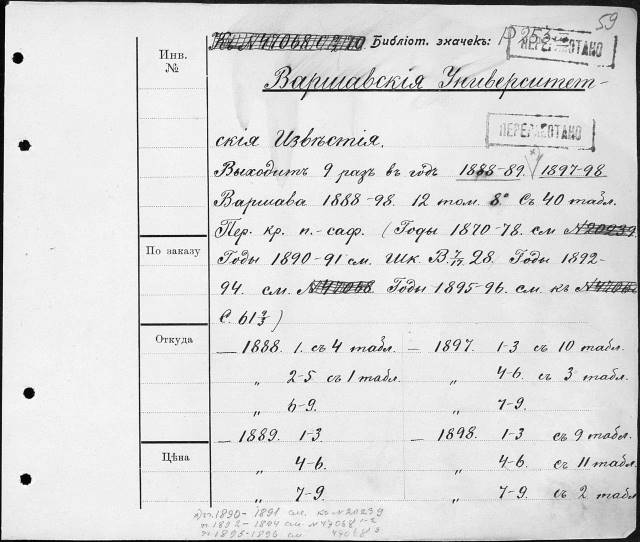 59
Къ N47068 Библіот. значекъ: P 25
ПЕРЕРАБОТАНО
Инв.
№
Варшавскія Университет-
скія Извѣстія.
ПЕРЕРАБОТАНО
Выходитъ 9 разъ въ годъ 1888-89. 1897-98
Варшава 1888-98. 12 том. 8° съ 40 табл.
Пер. кр. п.-саф. (Годы 1870-78. см N20239
По заказу
Годы 1890-91 см. Шк. В 7/17 28. Годы 1892-
94. см. N47068 Годы 1895-96. см. къ N47068
С. 61 )
Откуда
— 1888. 1. съ 4 табл. — 1897. 1-3 съ 10 табл.
„ 2-5 съ 1 табл. „ 4-6. съ 3 табл.
„ 6-9. „ 7-9.
— 1889. 1-3. — 1898. 1-3 съ 9 табл.
Цѣна
„ 4-6. „ 4-6. съ 11 табл.
„ 7-9. „ 7-9. съ 2 табл
1890-1891 см. къ N20239
1892-1894 см. N47068 1-2
1895-1896 см. 47068 3